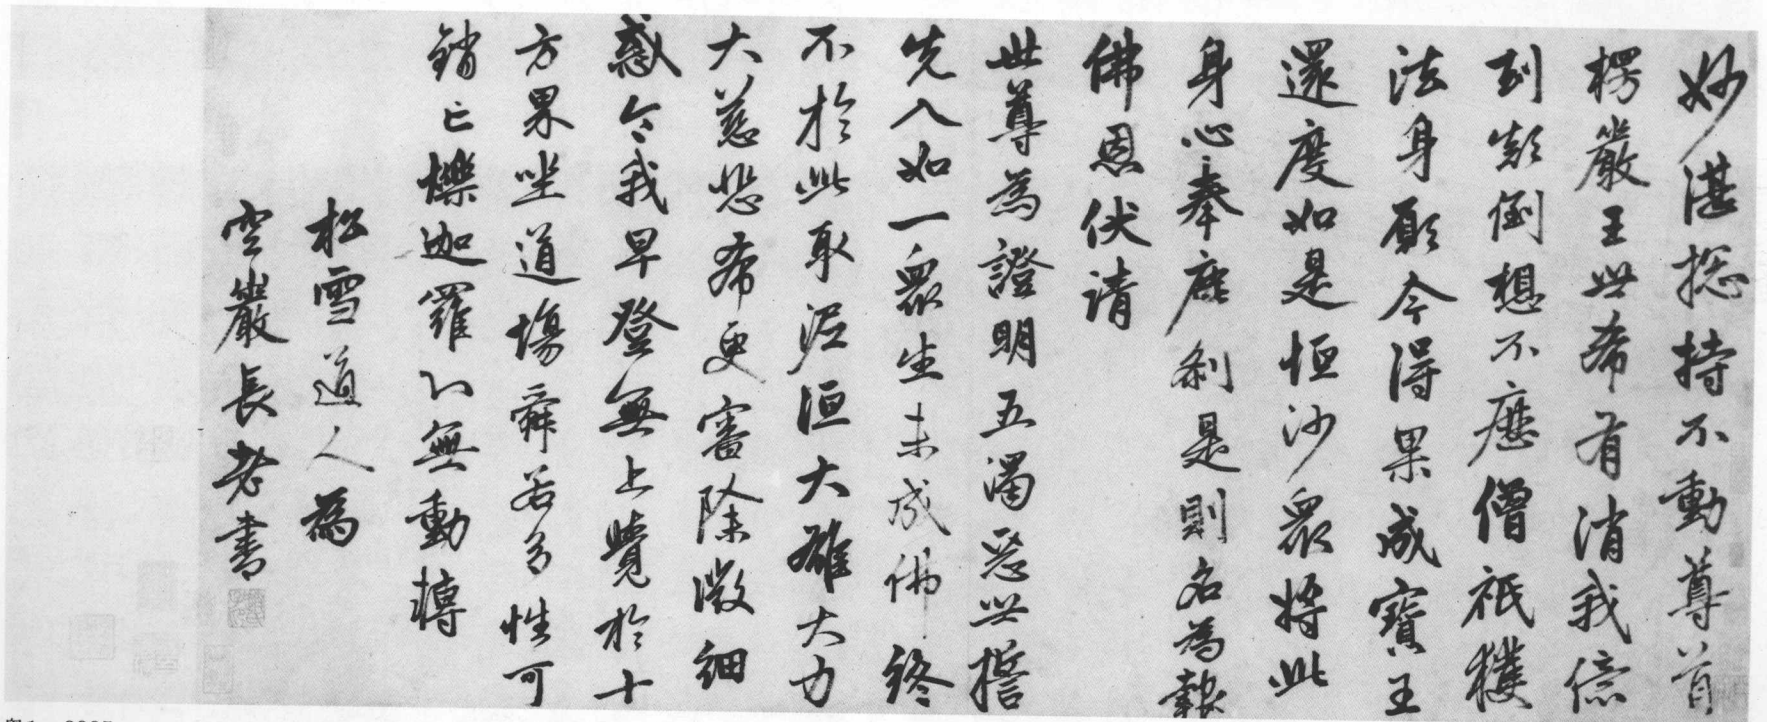 妙湛捴持不動尊首
楞嚴王世希有消我億
刧顛倒想不歷僧祇獲
法身願今得果成寶王
還度如是恒沙衆將此
身心奉塵剎是則名為報
佛恩伏請
世尊為證明五濁惡世誓
先入如一衆生未成佛終
不於此取泥洹大雄大力
大慈悲希更審除微細
惑令我早登無上覺於十
方界坐道場舜若多性可
銷亡爍迦羅心無動轉
松雪道人為
空巖長老書